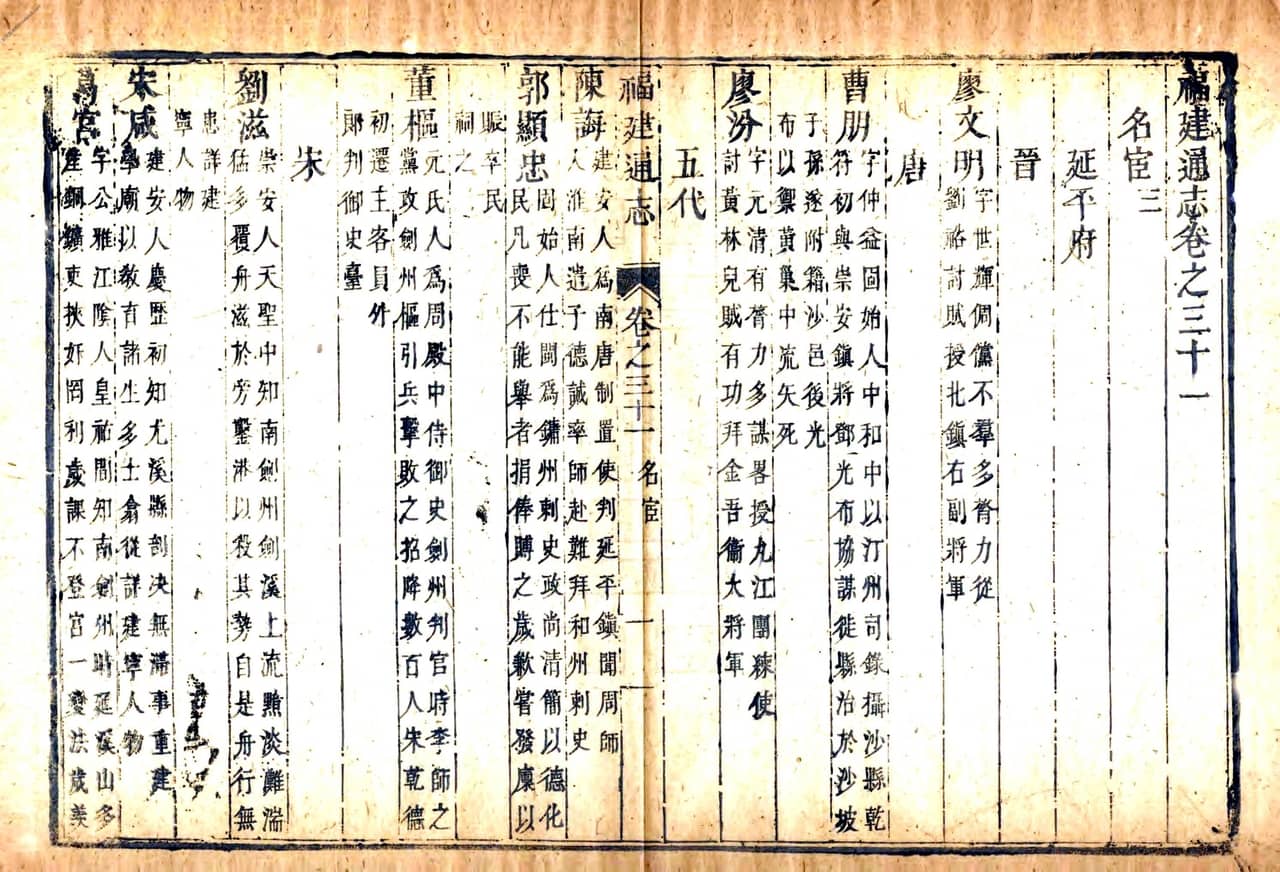 福建通志卷之三十一
名宦三
延平府
晉
廖文明
字世輝倜儻不羣多膂力從
劉裕討賊授北鎮右副將軍
唐
曹朋
字仲益固始人中和中以汀州司錄攝沙縣乾
符初與崇安鎮將鄧光布協謀徙縣治於沙坡
子孫遂附籍沙邑後光
布以禦黃巢中流矢死
廖汾
字元清有膂力多謀畧授九江團練使
討黃林兒賊有功拜金吾衞大將軍
五代
福建通志 卷之三十一 名宦 一
陳誨
建安人為南唐制置使判延平鎮聞周師
入淮南遣子德誠率師赴難拜和州刺史
郭顯忠
固始人仕閩為鏞州刺史政尚清簡以德化
民凡喪不能舉者捐俸賻之歲歉嘗發廩以
賑卒民
祠之
董樞
元氏人為周殿中侍御史劍州判官時李師之
黨攻劍州樞引兵擊敗之招降數百人朱乾德
初遷主客員外
郎判御史臺
宋
劉滋
崇安人天聖中知南劍州劍溪上流黯淡灘湍
猛多覆舟滋於旁鑿港以殺其勢自是舟行無
患詳建
寧人物
宋咸
建安人慶歷初知尤溪縣剖决無滯事重建
學廟以教育諸生多士翕從詳建寧人物
葛宮
字公雅江陰人皇祐間知南劍州時延溪山多
產銅鑛吏挾奸罔利歲課不登宮一變法歲美